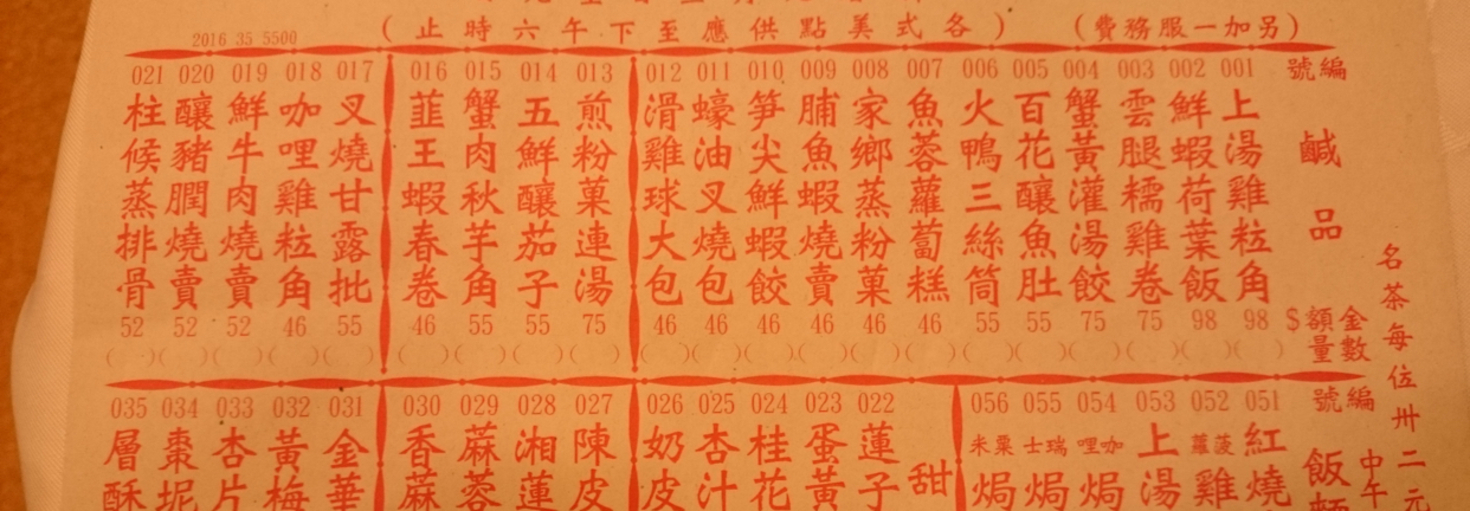 (另加一服務費)
(各式美點供應至下午六時止)
2016 35 5500
編號
鹹品
金額$
數量
001 上湯雞粒角 98 ( )
002 鮮蝦荷葉飯 98 ( )
003 雲腿糯雞卷 75 ( )
004 蟹黃灌湯餃 75 ( )
005 百花釀魚肚 55 ( )
006 火鴨三絲筒 55 ( )
007 魚蓉蘿蔔糕 46 ( )
008 家鄉蒸粉菓 46 ( )
009 脯魚蝦燒賣 46 ( )
010 笋尖鮮蝦餃 46 ( )
011 蠔油叉燒包 46 ( )
012 滑雞球大包 46 ( )
013 煎粉菓連湯 75 ( )
014 五鮮釀茄子 55 ( )
015 蟹肉秋芋角 55 ( )
016 韮王蝦春卷 46 ( )
017 叉燒甘露批 55 ( )
018 咖哩雞粒角 46 ( )
019 鮮牛肉燒賣 52 ( )
020 釀豬膶燒賣 52 ( )
021 柱候蒸排骨 52 ( )
名茶每位卅二元
中午
編號
飯
051 紅燒
052 菠蘿雞
053 上湯
054 咖哩焗
055 瑞士焗
056 粟米焗
甜
022 蓮子
023 蛋黃
024 桂花
025 杏汁
026 奶皮
027 陳皮
028 湘蓮
029 蔴蓉
030 香蔴
031 金華
032 黃梅
033 杏片
034 棗坭
035 層酥